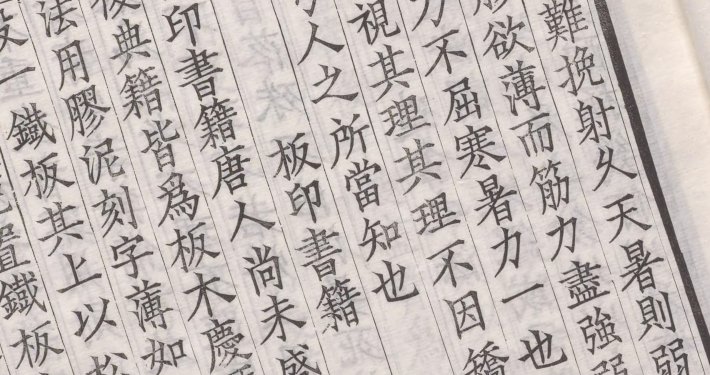 難挽射久天暑則弱
膠欲薄而筋力盡強弱
力不屈寒暑力一也
視其理其理不因矯
人之所當知也
板印書籍
印書籍唐人尚未盛
後典籍皆爲板木慶
法用膠泥刻字薄如
設一鐵板其上以松
置鐵板